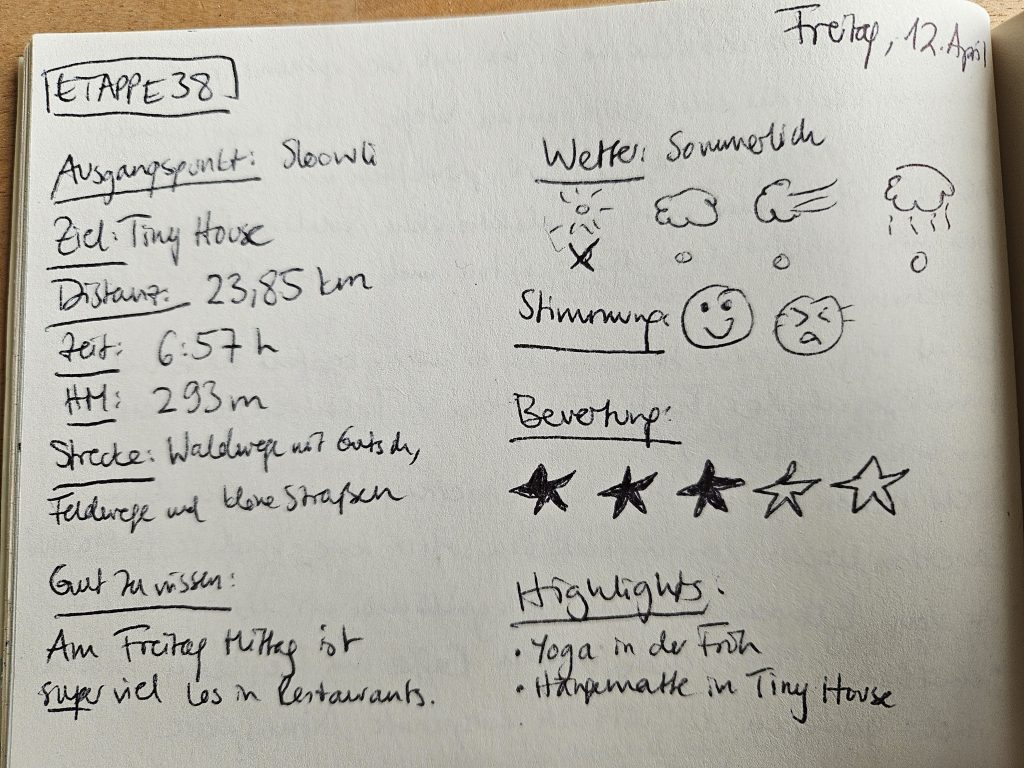 Freitag, 12. April
ETAPPE 38
Ausgangspunkt: Sloowli
Ziel: Tiny House
Distanz: 23,85 km
Zeit: 6:57 h
HM: 293 m
Strecke: Waldwege mit Gatsch,
Feldwege und kleine Straßen
Gut zu wissen:
Am Freitag Mittag ist
super viel los in Restaurants.
Wetter: Sommerlich
Stimmung:
Bewertung:
Highlights:
• Yoga in der Früh
• Hängematte in Tiny House